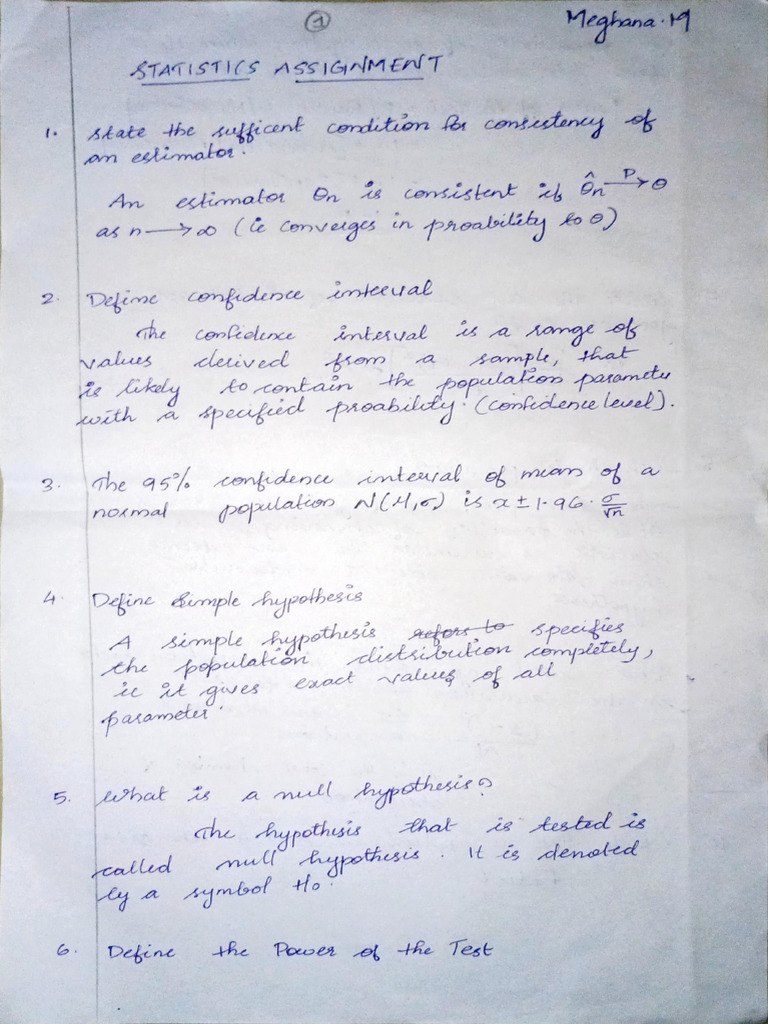 1
Meghana. M
STATISTICS ASSIGNMENT
1. state the sufficent condition for consistency of
an estimator.
An estimator θn is consistent if θ̂n →P θ
as n → ∞ (ie converges in proability to θ)
2. Define confidence interval
The confidence interval is a range of
values derived from a sample, that
is likely to contain the population parameter
with a specified proability. (confidence level).
3. The 95% confidence interval of mean of a
normal population N(μ,σ) is x ± 1.96 · σ/√n
4. Define Simple hypothesis
A simple hypothesis refers to specifies
the population distribution completely,
ie it gives exact values of all
parameter.
5. What is a null hypothesis?
The hypothesis that is tested is
called null hypothesis. It is denoted
by a symbol H₀.
6. Define the Power of the Test